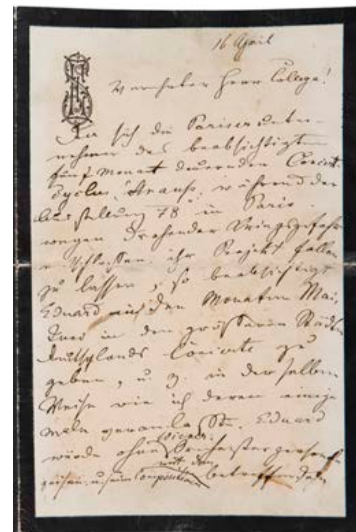 16 April
Verehrter Herr College!
Da sich die Pariser unter-
nehmer des beabsichtigten
fünf Monat dauernden Concert-
Cyclus, "Strauss" während der
Ausstellung 78 in Paris
wegen drohender Kriegsgefahr
entschlossen ihr Projekt fallen
zu lassen, so beabsichtigt
Eduard in den Monaten Mai,
Juni in den größeren Städten
Deutschlands Concerte zu
geben, u. z. in derselben
Weise wie ich deren einige
male veranlaßte. Eduard
würde ohne Orchesterpersonale
reisen u. nur mit den
Compositionen betreffenden